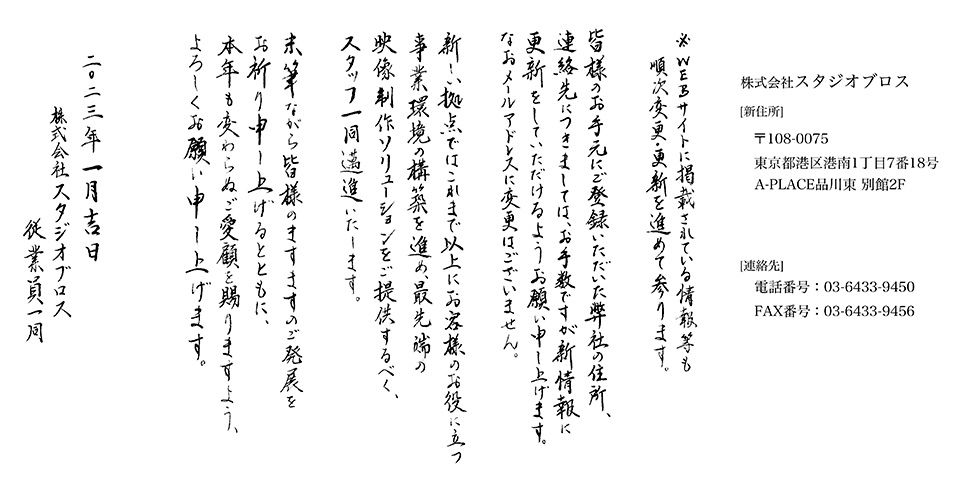 株式会社スタジオブロス
[新住所]
〒108-0075
東京都港区港南1丁目7番18号
A-PLACE品川東 別館2F
[連絡先]
電話番号：03-6433-9450
FAX番号：03-6433-9456
※WEBサイトに掲載されている情報等も
順次変更・更新を進めて参ります。
皆様のお手元にご登録いただいた弊社の住所、
連絡先につきましては、お手数ですが新情報に
更新をしていただけるようお願い申し上げます。
なおメールアドレスに変更はございません。
新しい拠点ではこれまで以上にお客様のお役に立つ
事業環境の構築を進め、最先端の
映像制作ソリューションをご提供するべく、
スタッフ一同邁進いたします。
末筆ながら皆様のますますのご発展を
お祈り申し上げるとともに、
本年も変わらぬご愛顧を賜りますよう、
よろしくお願い申し上げます。
二〇二三年 一月吉日
株式会社スタジオブロス
従業員一同